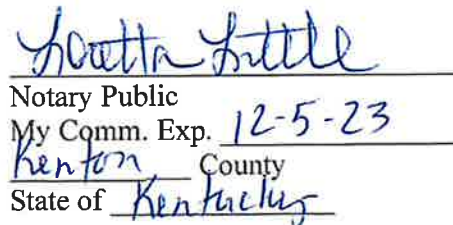 Loretta Little
Notary Public
My Comm. Exp. 12-5-23
Kenton County
State of Kentucky